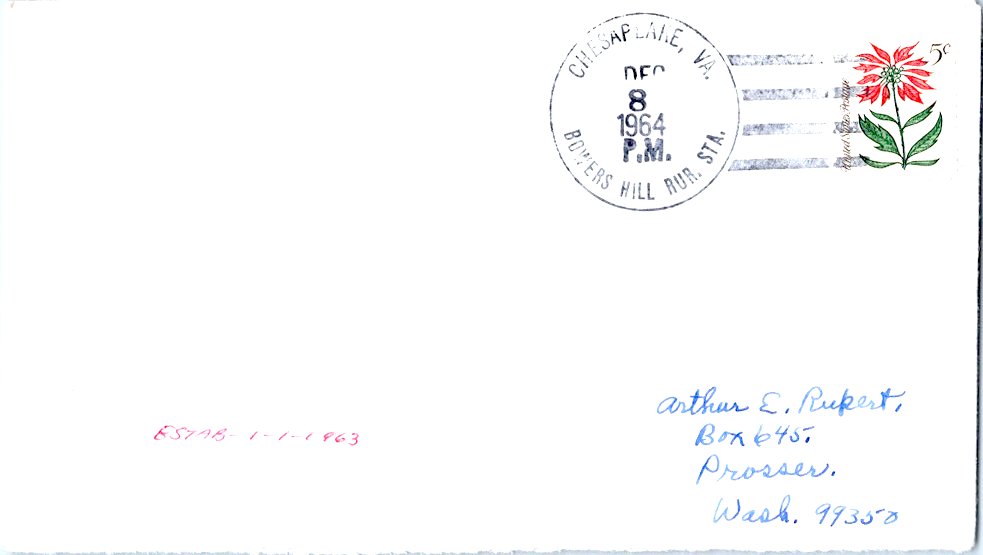 CHESAPEAKE, VA.
DEC
8
1964
P.M.
BOWERS HILL RUR. STA.
5c
United States Postage
Arthur E. Rupert,
Box 645.
Prosser.
Wash. 99350
ESTAB- 1-1-1963